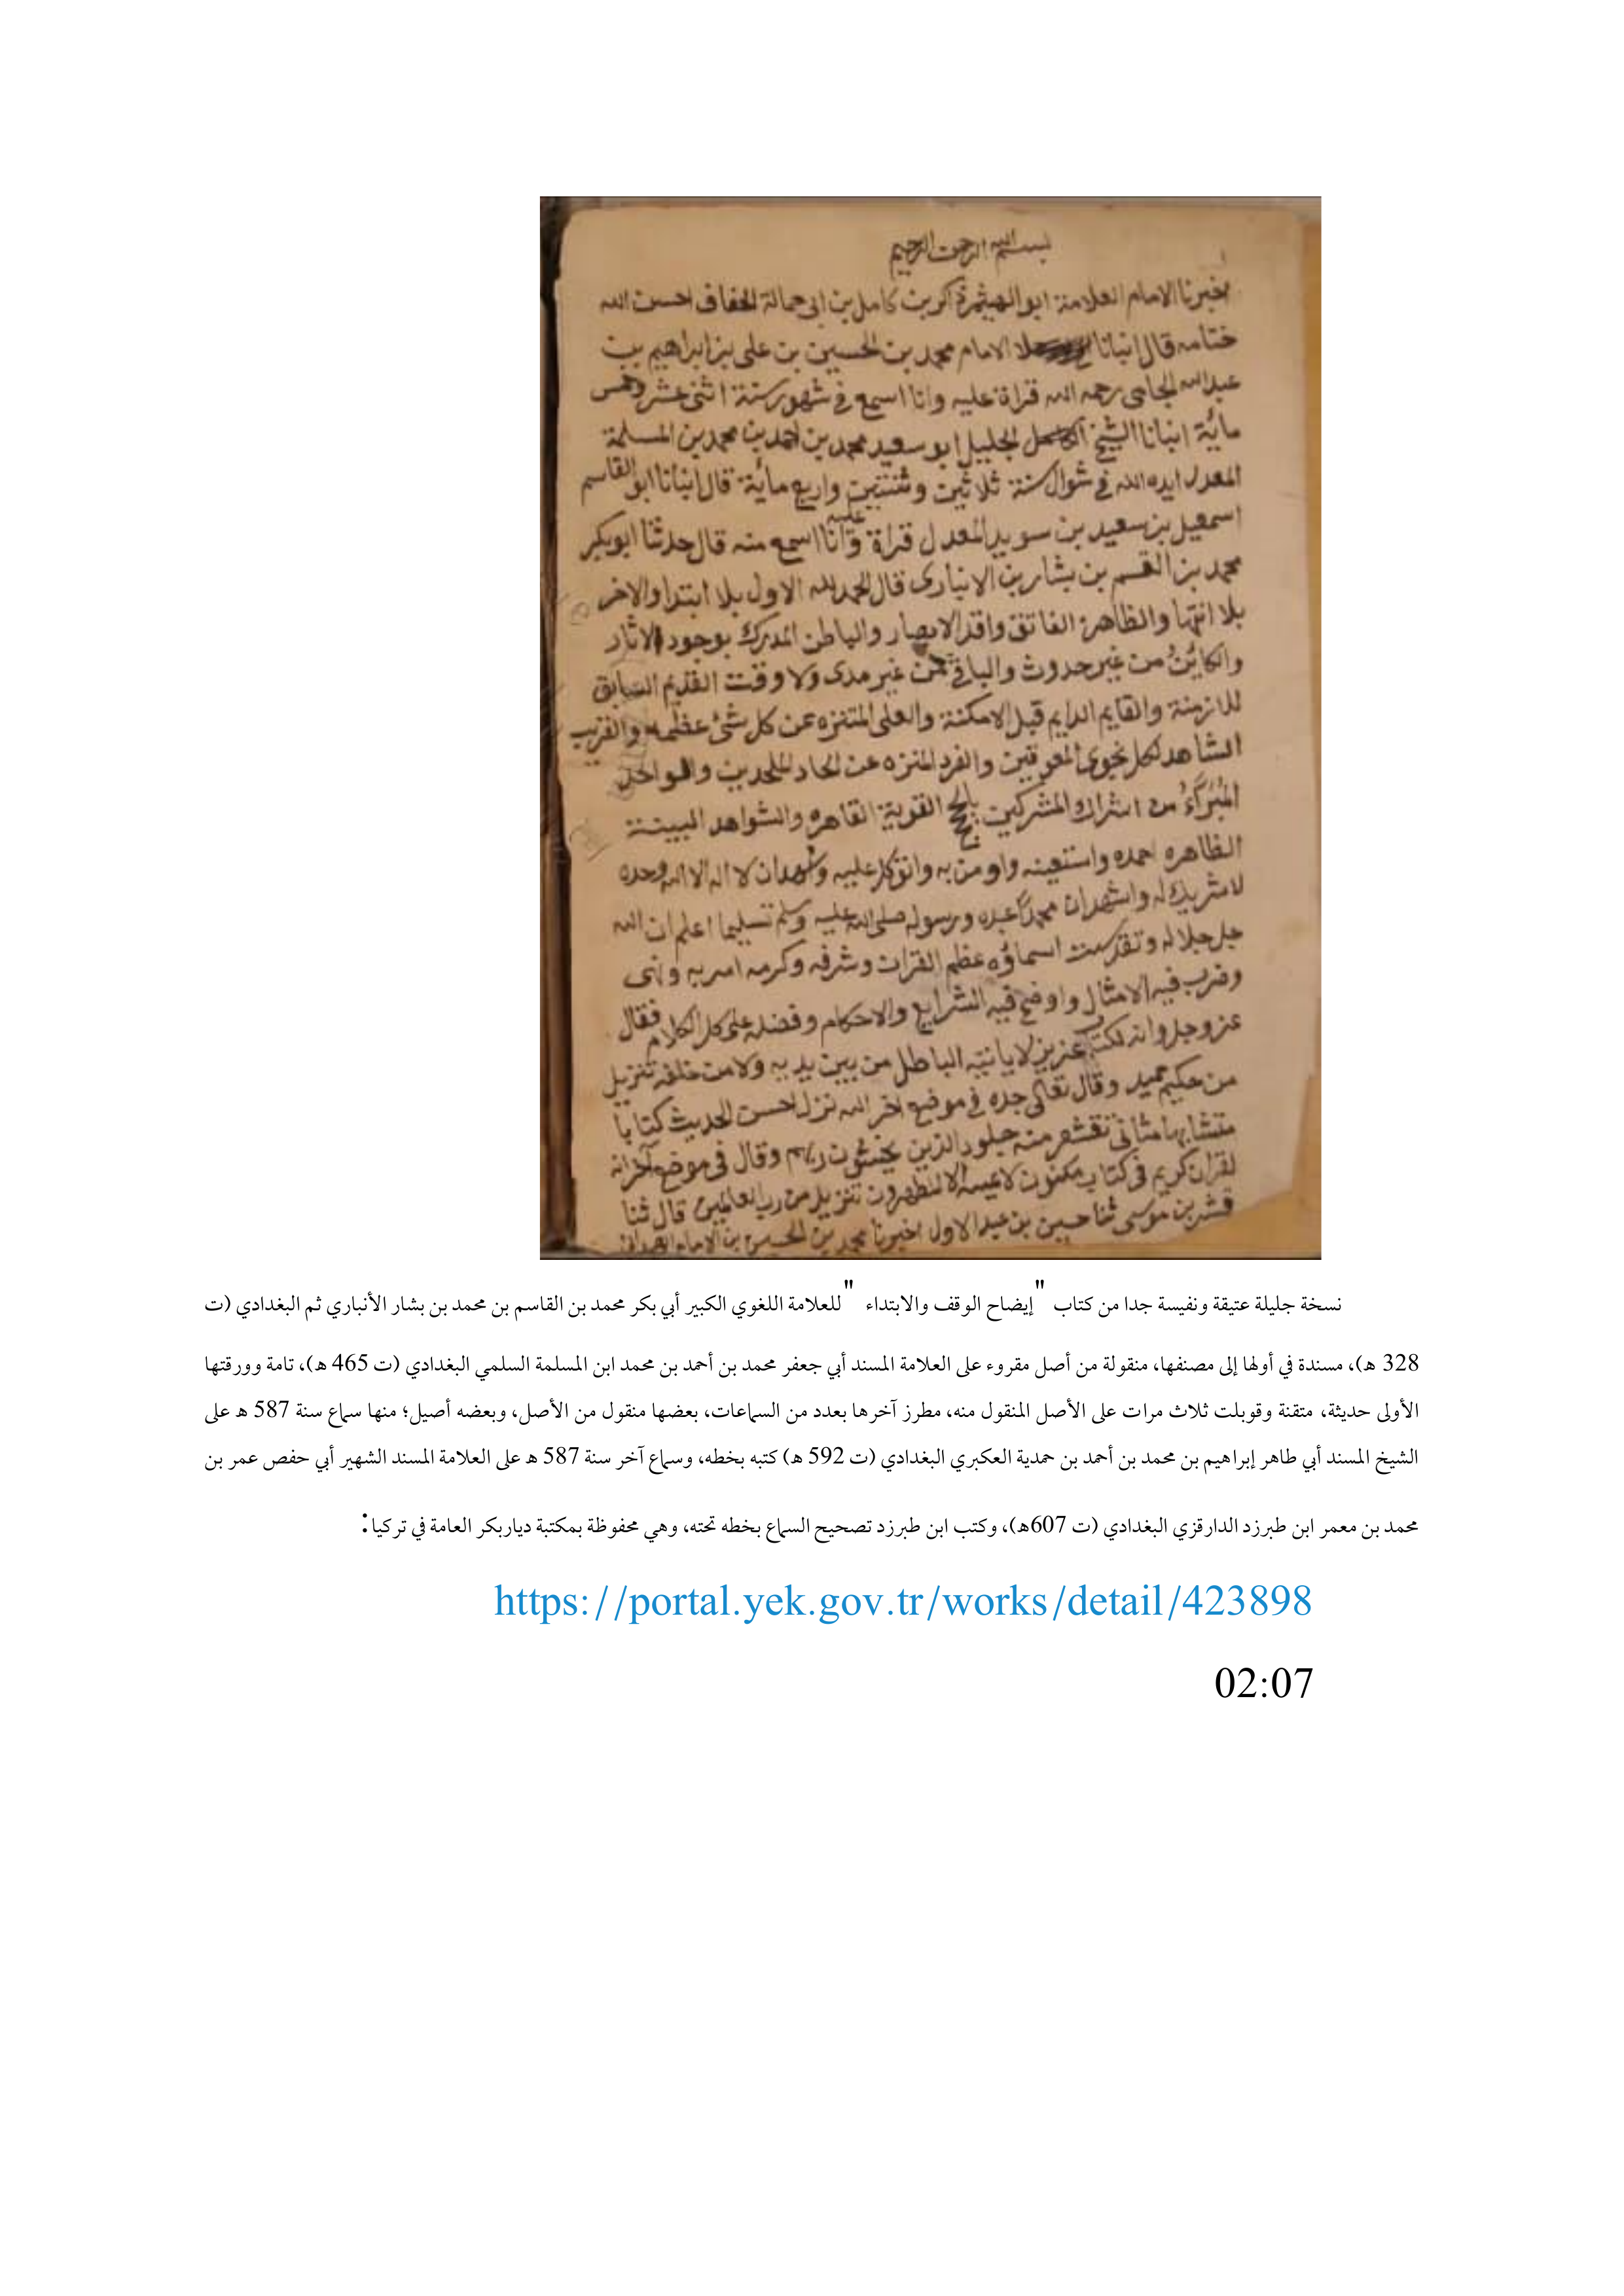 بسم الله الرحمن الرحيم
اخبرنا الامام العلامة ابو الهيثم ذاكر بن كامل بن ابي الخفاف احسن الله
ختامه قال انبانا الامام محمد بن الحسين بن علي بن ابراهيم بن
عبد الله رحمه الله قراة عليه وانا اسمع في شهور سنة اثنى عشر وخمس
مائة انبانا الشيخ الجليل ابو سعيد محمد بن احمد بن محمد بن المسلمة
المعدل ايده الله في شوال سنة ثلاثين وثنتين واربع مائة قال انبانا ابو القاسم
اسمعيل بن سعيد بن سويد المعدل قراة عليه وانا اسمع منه قال حدثنا ابو بكر
محمد بن القسم بن بشار بن الانباري قال الحمد لله الاول بلا ابتدا والاخر
بلا انتها والظاهر الابصار والباطن المدرك بوجود الاثار
والكاين من غير حدوث والباقي غير مدى ولا وقت القديم السابق
للازمنة والقايم الدايم قبل الامكنة والعلي المتنزه عن كل شئ والقريب
الشاهد لكل نجوى والفرد المنزه عن الحاد الملحدين والواحد
المبرأ من اشراك المشركين القوية القاهره والشواهد البينة
الظاهره احمده واستعينه واومن به واتوكل عليه واشهد ان لا اله الا الله وحده
لا شريك له واشهد ان محمداً عبده ورسوله صلى الله عليه وسلم تسليما اعلم ان الله
جل جلاله وتقدست اسماؤه عظم القران وشرفه وكرمه امر به ونهى
وضرب فيه الامثال واوضح فيه الشرايع والاحكام وفضله على كل الكلام فقال
عز وجل وانه لكتب عزيز لا ياتيه الباطل من بين يديه ولا من خلفه تنزيل
من حكيم حميد وقال تعالى جده في موضع اخر الله نزل احسن الحديث كتابا
متشابها مثاني تقشعر منه جلود الذين يخشون ربهم وقال في موضع آخر انه
لقران كريم في كتاب مكنون لا يمسه الا المطهرون تنزيل من رب العالمين قال ثنا
بن موسى ثنا حسين بن عبد الاول اخبرنا محمد بن الحسن بن
نسخة جليلة عتيقة ونفيسة جدا من كتاب "إيضاح الوقف والابتداء" للعلامة اللغوي الكبير أبي بكر محمد بن القاسم بن محمد بن بشار الأنباري ثم البغدادي (ت
328 هـ)، مسندة في أولها إلى مصنفها، منقولة من أصل مقروء على العلامة المسند أبي جعفر محمد بن أحمد بن محمد ابن المسلمة السلمي البغدادي (ت 465 هـ)، تامة وورقتها
الأولى حديثة، متقنة وقوبلت ثلاث مرات على الأصل المنقول منه، مطرز آخرها بعدد من السماعات، بعضها منقول من الأصل، وبعضه أصيل؛ منها سماع سنة 587 هـ على
الشيخ المسند أبي طاهر إبراهيم بن محمد بن أحمد بن حمدية العكبري البغدادي (ت 592 هـ) كتبه بخطه، وسماع آخر سنة 587 هـ على العلامة المسند الشهير أبي حفص عمر بن
محمد بن معمر ابن طبرزد الدارقزي البغدادي (ت 607هـ)، وكتب ابن طبرزد تصحيح السماع بخطه تحته، وهي محفوظة بمكتبة دياربكر العامة في تركيا:
https://portal.yek.gov.tr/works/detail/423898
02:07